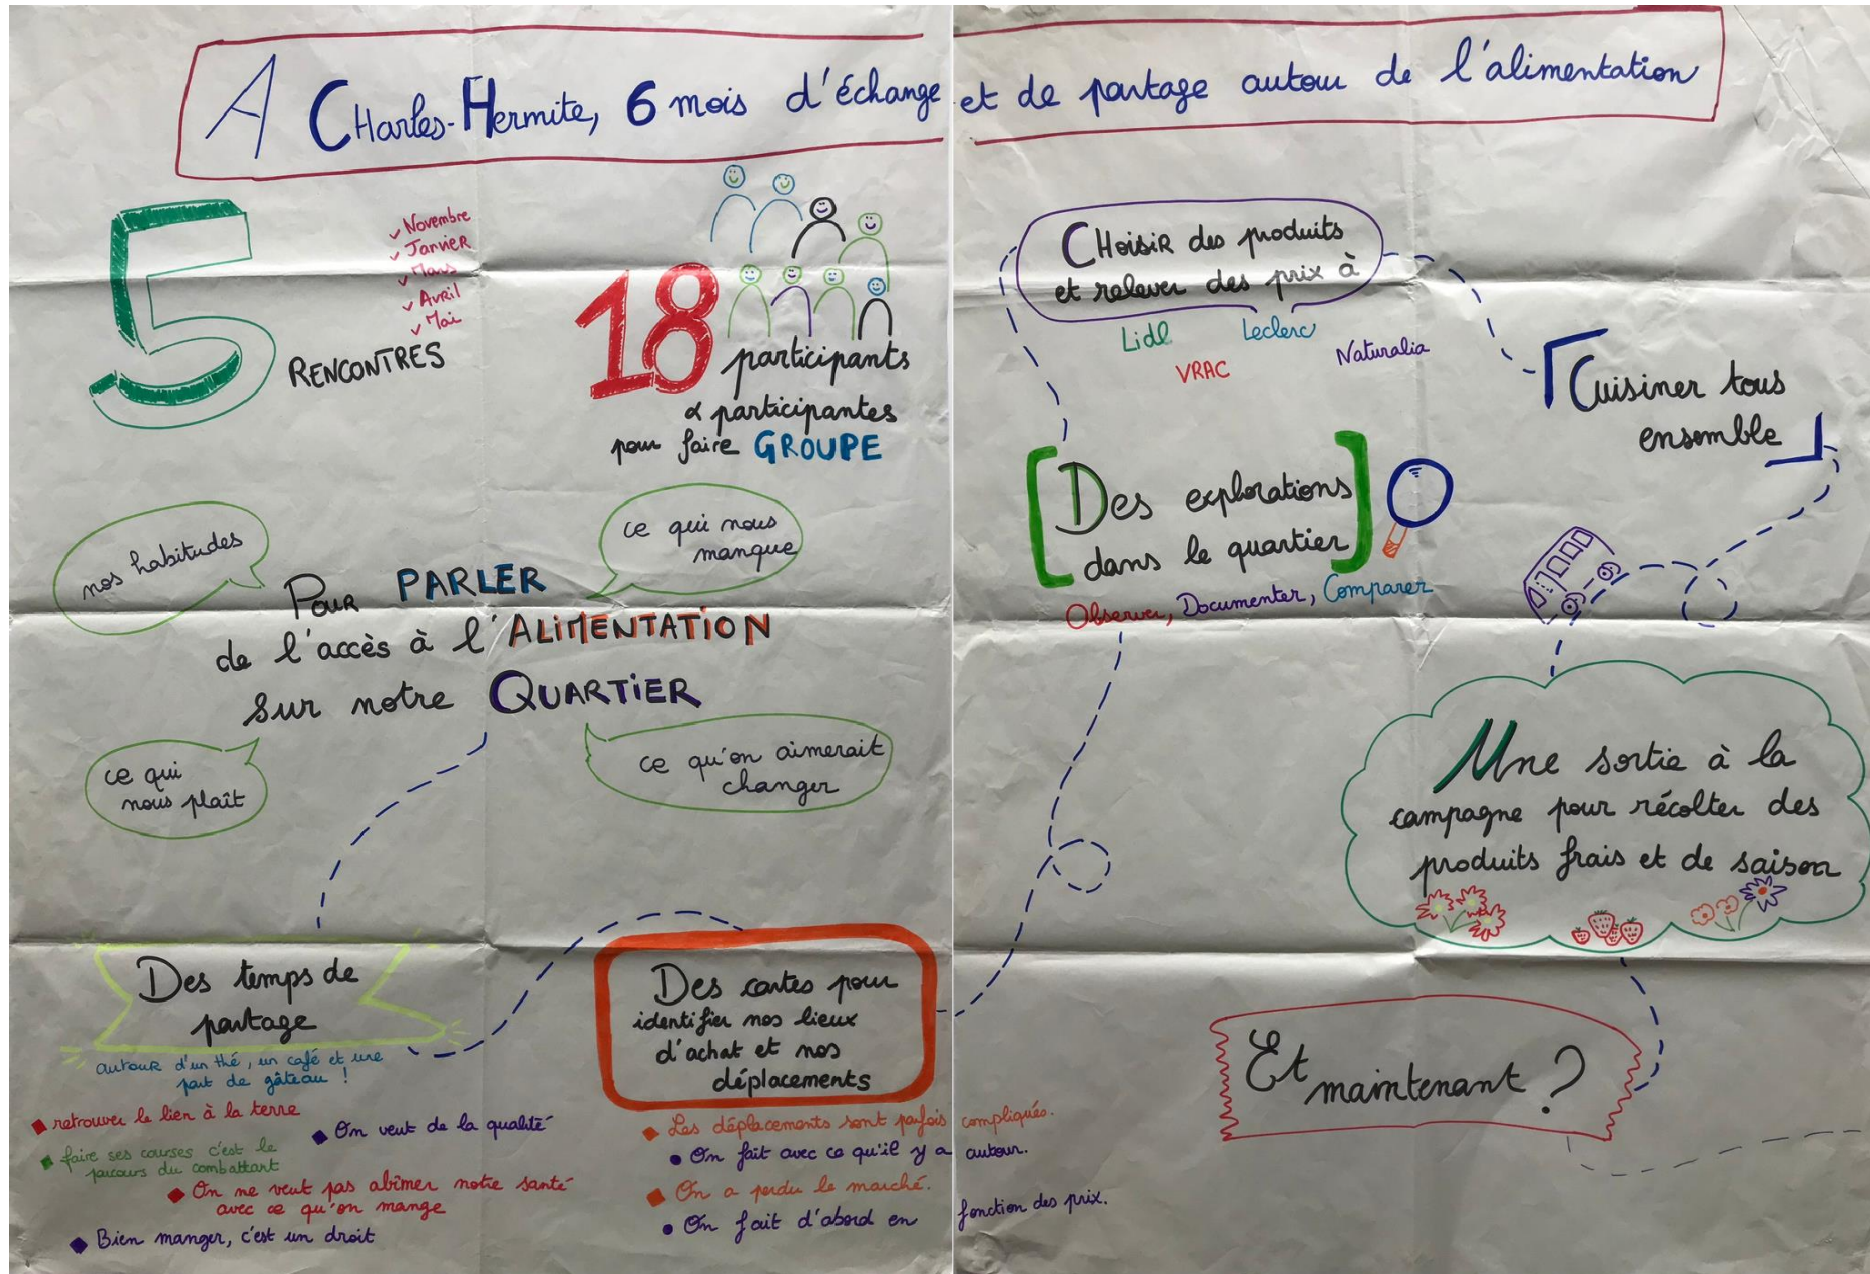 A CHarles-Hermite, 6 mois d'échange et de partage autour de l'alimentation
5
RENCONTRES
Novembre
Janvier
Mars
Avril
Mai
18
participants
& participantes
pour faire GROUPE
nos habitudes
ce qui nous
manque
Pour PARLER
de l'accès à l'ALIMENTATION
sur notre QUARTIER
ce qui
nous plaît
ce qu'on aimerait
changer
Des temps de
partage
autour d'un thé, un café et une
part de gâteau !
retrouver le lien à la terre
On veut de la qualité
faire ses courses c'est le
parcours du combattant
On ne veut pas abîmer notre santé
avec ce qu'on mange
Bien manger, c'est un droit
Des cartes pour
identifier nos lieux
d'achat et nos
déplacements
Les déplacements sont parfois compliqués.
On fait avec ce qu'il y a autour.
On a perdu le marché.
On fait d'abord en fonction des prix.
Des explorations
dans le quartier
Observer, Documenter, Comparer
CHoisir des produits
et relever des prix à
Lidl
Leclerc
VRAC
Naturalia
Cuisiner tous
ensemble
Une sortie à la
campagne pour récolter des
produits frais et de saison
Et
maintenant ?